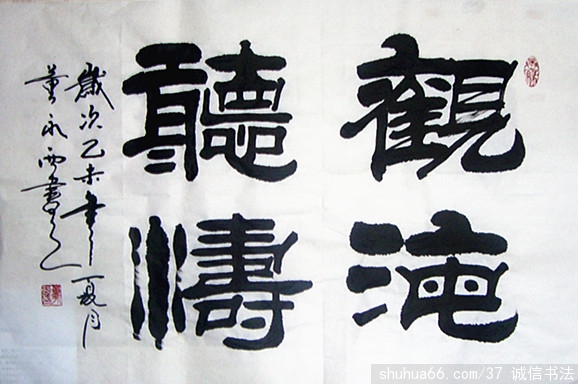 觀海
聽濤
歲次乙未年夏月
董永書之
shuhua66.com/37 诚信书法